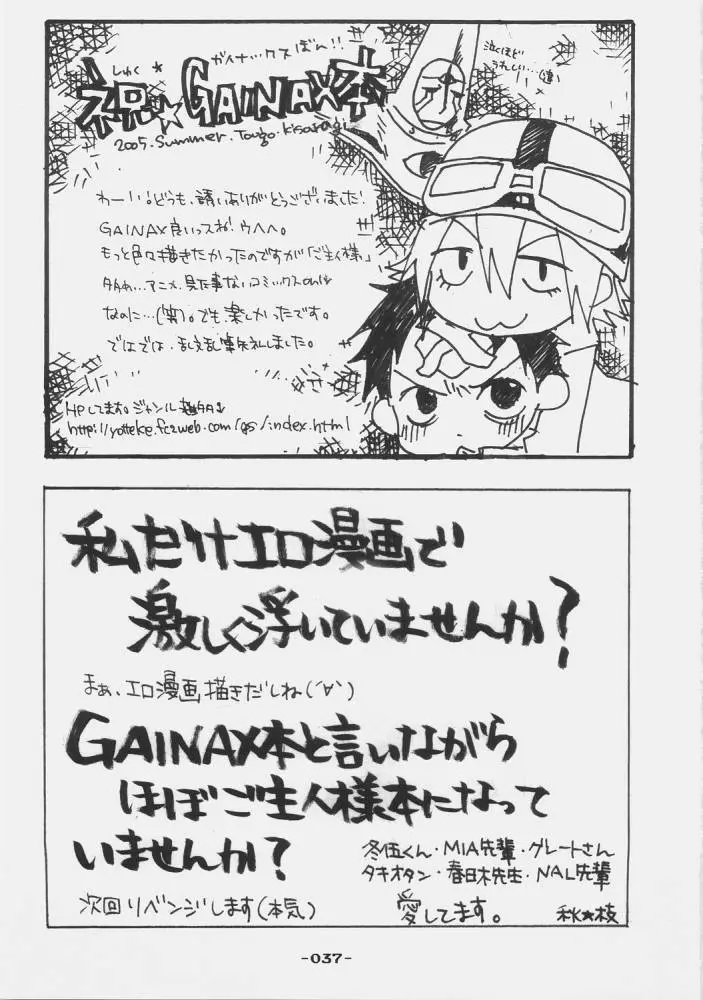 しゅく
ガイナックスぼん!!
祝☆GAINAX本
2005.Summer.Tougo.Kisaragi
泣くほど
うれしい…
わーい!どうも、誘いありがとうございました!
GAINAX良いっスね!ウヘヘ。
もっと色々描きたかったのですが「ご主人様」
アニメ見た事ないコミックスonly
なのに…(笑)。でも楽しかったです。
ではでは、乱文乱筆失礼しました。
HPしてます。ジャンル
http://yotteke.fc2web.com/gs/index.html
私だけエロ漫画で
激しく浮いていませんか?
まぁ、エロ漫画描きだしね(´∀`)
GAINAX本と言いながら
ほぼご主人様本になって
いませんか?
冬伍くん・MIA先輩・グレートさん
タキオタン・春日木先生・NAL先輩
次回リベンジします(本気)
愛してます。
秋★枝
-037-